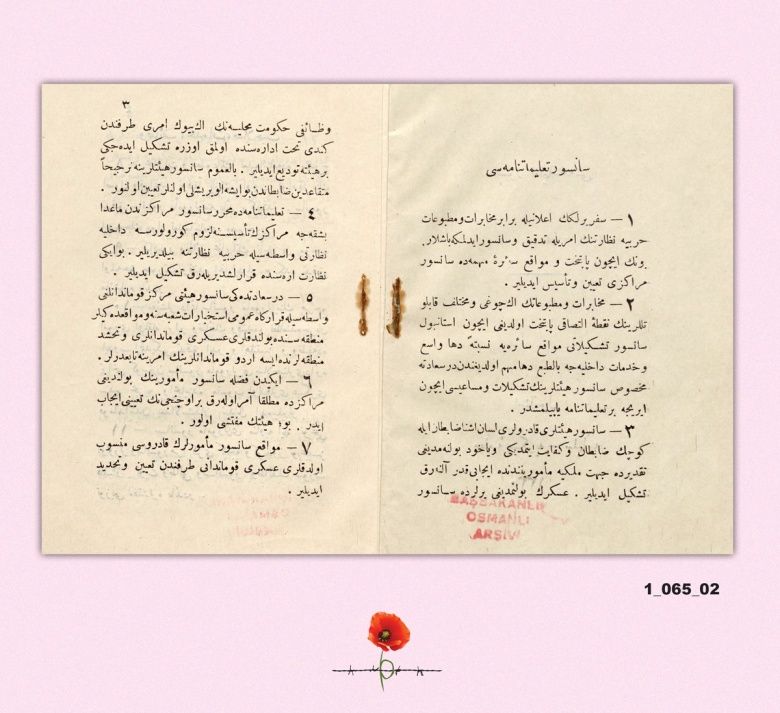 سانسور تعلیماتنامه سی
١ — سفربرلكك اعلانیله برابر مخابرات و مطبوعات
حربیه نظارتنك امریله تدقیق و سانسور ایدلمكه باشلار.
بونك ایچون پایتخت و مواقع سائرۀ مهمه ده سانسور
مراكزی تعیین و تأسیس ایدیلیر .
٢ — مخابرات و مطبوعاتك اك چوغی و مختلف قابلو
تللرینك نقطۀ التصاقی پایتخت اولدیغی ایچون استانبول
سانسور تشكیلاتی مواقع سائره یه نسبةً دها واسع
و خدمات داخلیه جه بالطبع دها مهم اولدیغندن درسعادته
مخصوص سانسور هیئتلرینك تشكیلات و مساعیسی ایچون
آیریجه بر تعلیماتنامه یاپیلمشدر .
٣ — سانسور هیئتلری قادرولری لسان آشنا ضابطان ایله
كوچك ضابطان و كفایت ایتمدیكی و یاخود بولنه مدیغی
تقدیرده جهت ملكیه مأموریندنده ایجابی قدر آله رق
تشكیل ایدیلیر . عسكرك بولنمدیغی یرلرده سانسور
BAŞBAKANLIK
OSMANLI
ARŞİVİ
٣
وظائفی حكومت مجلیه نك اك بیوك امری طرفندن
كندی تحت اداره سنده اولمق اوزره تشكیل ایده جكی
بر هیئته تودیع ایدیلیر . بالعموم سانسور هیئتلرینه ترجیحاً
متقاعدین ضابطاندن بو ایشه الویریشلی اولنلر تعیین اولنور .
٤ — تعلیماتنامه ده محرر سانسور مراكزندن ماعدا
بشقه جه مراكزك تأسیسنه لزوم كورولورسه داخلیه
نظارتی واسطه سیله حربیه نظارتنه بیلدیریلیر . بو ایكی
نظارت اره سنده قرار لشدیریله رق تشكیل ایدیلیر .
٥ — درسعادتده كی سانسور هیئتی مركز قوماندانلغی
واسطه سیله قراركاه عمومی استخبارات شعبه سنه و مواقعده كیلر
منطقه سنده بولندقلری عسكری قوماندانلری و تحشد
منطقه لرنده ایسه اردو قوماندانلرینك امرینه تابعدرلر .
٦ — ایكیدن فضله سانسور مأمورینك بولندیغی
مراكزده مطلقا آمر اوله رق بر اوچنجی نك تعیینی ایجاب
ایدر . بو؛ هیئتك مفتشی اولور .
٧ — مواقع سانسور مأمورلرك قادروسی منسوب
اولدقلری عسكری قوماندانی طرفندن تعیین و تحدید
ایدیلیر .
1_065_02